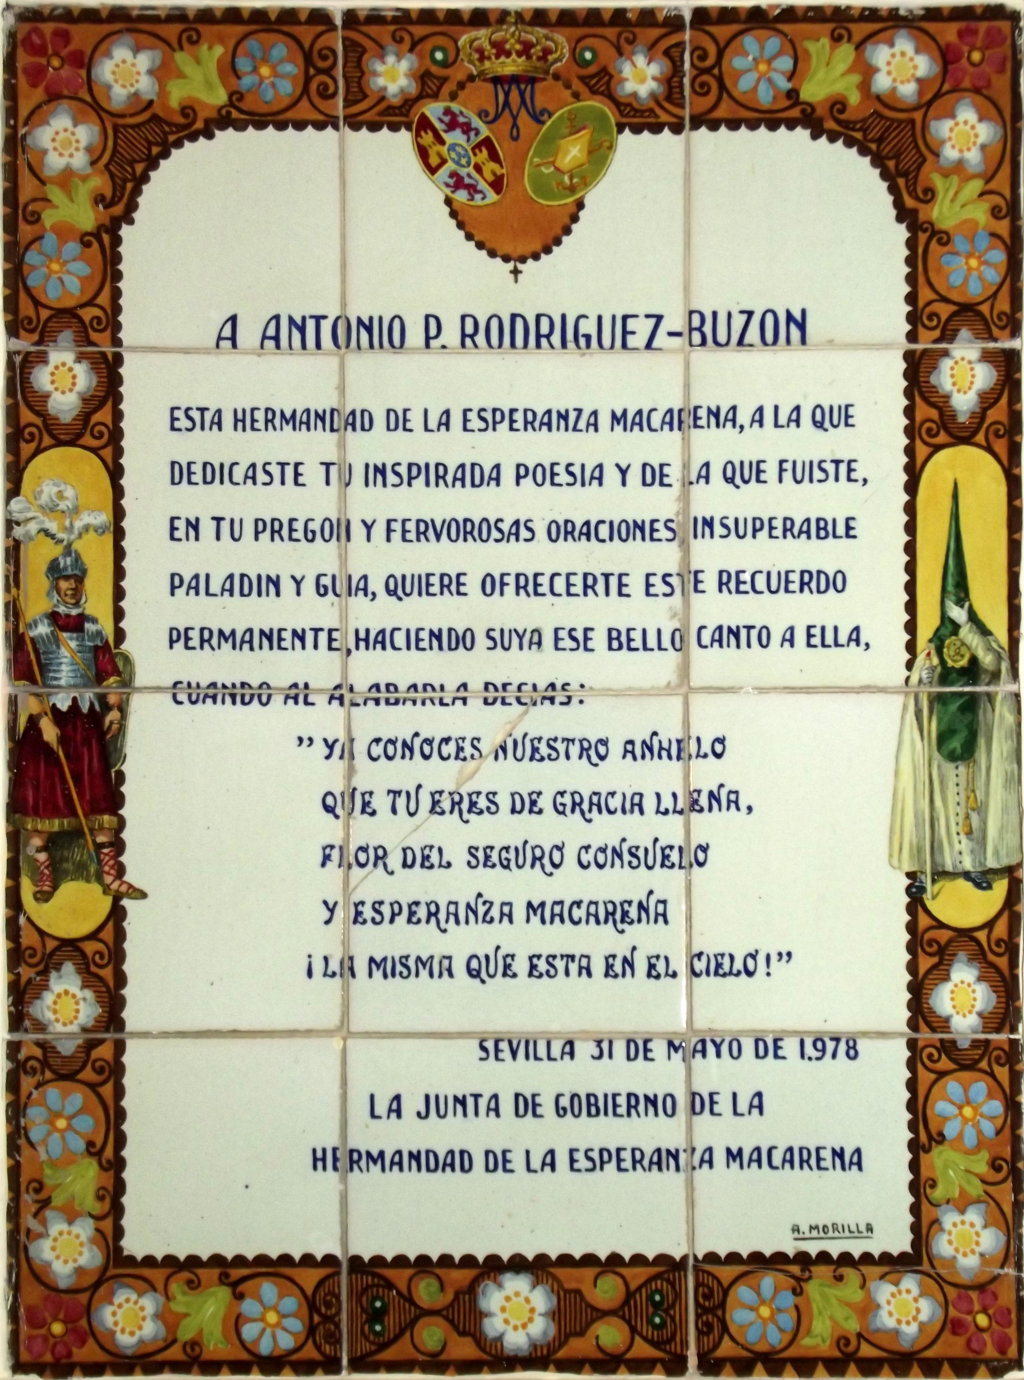 A ANTONIO P. RODRIGUEZ-BUZON
ESTA HERMANDAD DE LA ESPERANZA MACARENA, A LA QUE
DEDICASTE TU INSPIRADA POESIA Y DE LA QUE FUISTE,
EN TU PREGON Y FERVOROSAS ORACIONES INSUPERABLE
PALADIN Y GUIA, QUIERE OFRECERTE ESTE RECUERDO
PERMANENTE, HACIENDO SUYA ESE BELLO CANTO A ELLA,
CUANDO AL ALABARLA DECIAS:
"YA CONOCES NUESTRO ANHELO
QUE TU ERES DE GRACIA LLENA,
FLOR DEL SEGURO CONSUELO
Y ESPERANZA MACARENA
¡LA MISMA QUE ESTA EN EL CIELO!"
SEVILLA 31 DE MAYO DE 1.978
LA JUNTA DE GOBIERNO DE LA
HERMANDAD DE LA ESPERANZA MACARENA
A. MORILLA